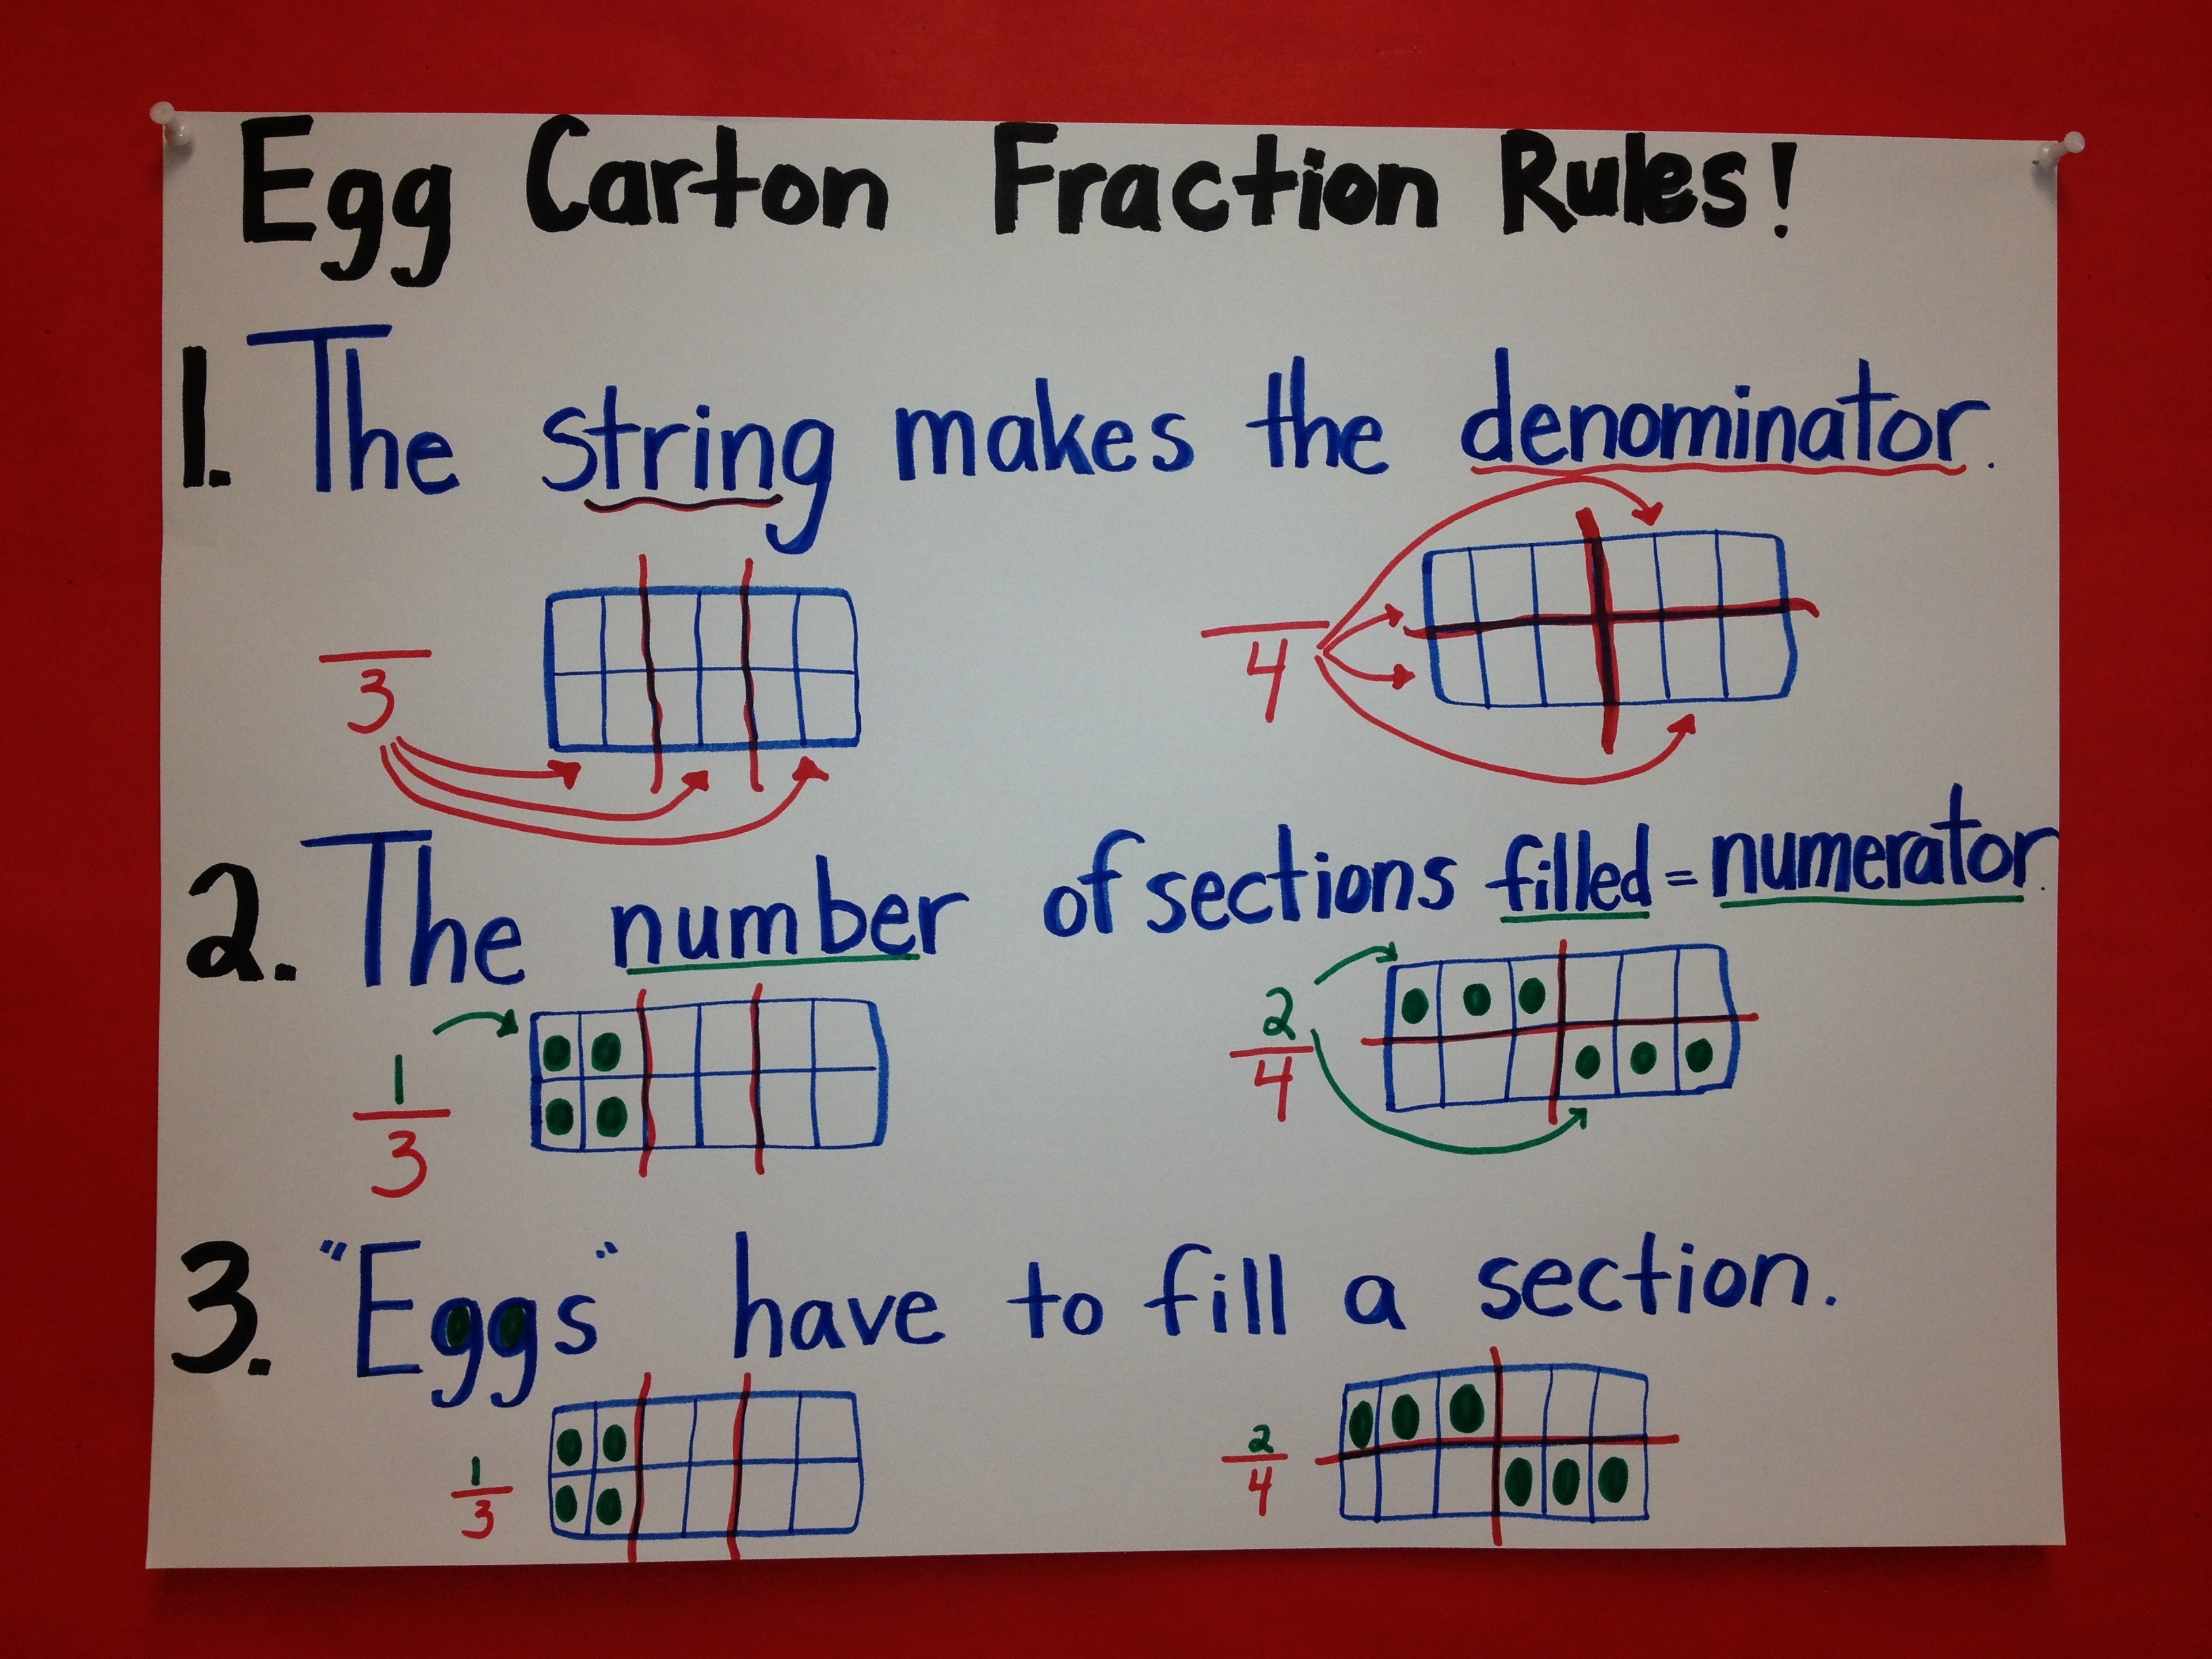 Egg Carton Fraction Rules!
1. The string makes the denominator.
3
4
2. The number of sections filled = numerator.
1
3
2
4
3. "Eggs" have to fill a section.
1
3
2
4